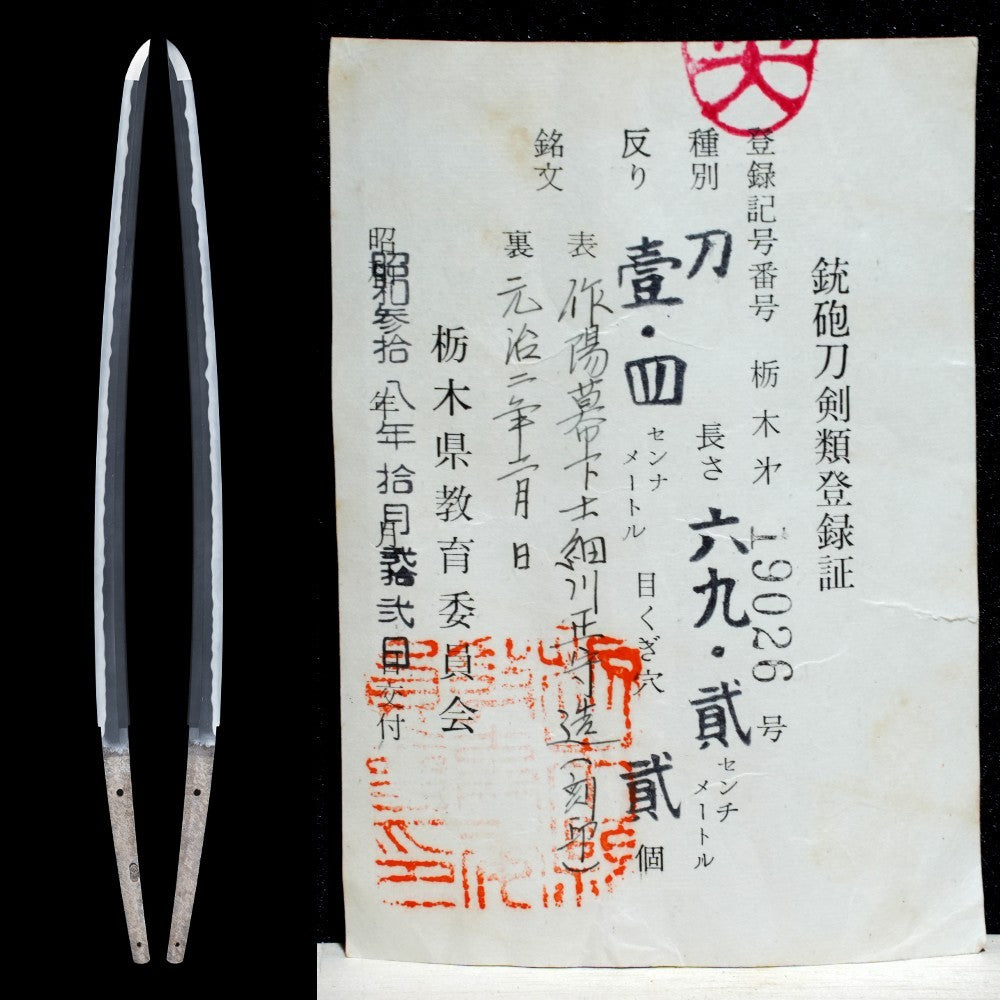 銃砲刀剣類登録証
登録記号番号 栃木㐧 19026 号
種別 刀 長さ 六九・貳 センチメートル
反り 壹・四 センチメートル 目くぎ穴 貳 個
銘文 表 作陽幕下士細川正守造(刻印)
裏 元治二年二月日
栃木県教育委員会
昭和参拾八年拾月貳拾弐日交付